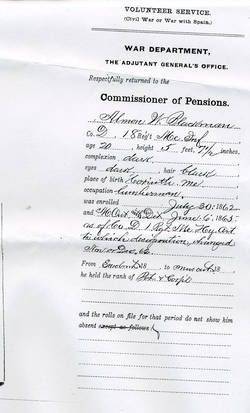 VOLUNTEER SERVICE.
(Civil War or War with Spain.)
WAR DEPARTMENT,
THE ADJUTANT GENERAL'S OFFICE.
Respectfully returned to the
Commissioner of Pensions.
Almon W. Blackman
Co. D, 18 Reg't Me. Inf
age 20, height 5 feet, 7½ inches
complexion dark
eyes dark, hair black
place of birth Corinth, Me
occupation lumberman
was enrolled July 30, 1862
and M. Out June 6, 1865
as of Co. D, 1 Regt. Me. Hy. Art
to which designation changed
From 18 to 18
he held the rank of Pvt & Corpl
and the rolls on file for that period do not show him
absent except as follows: